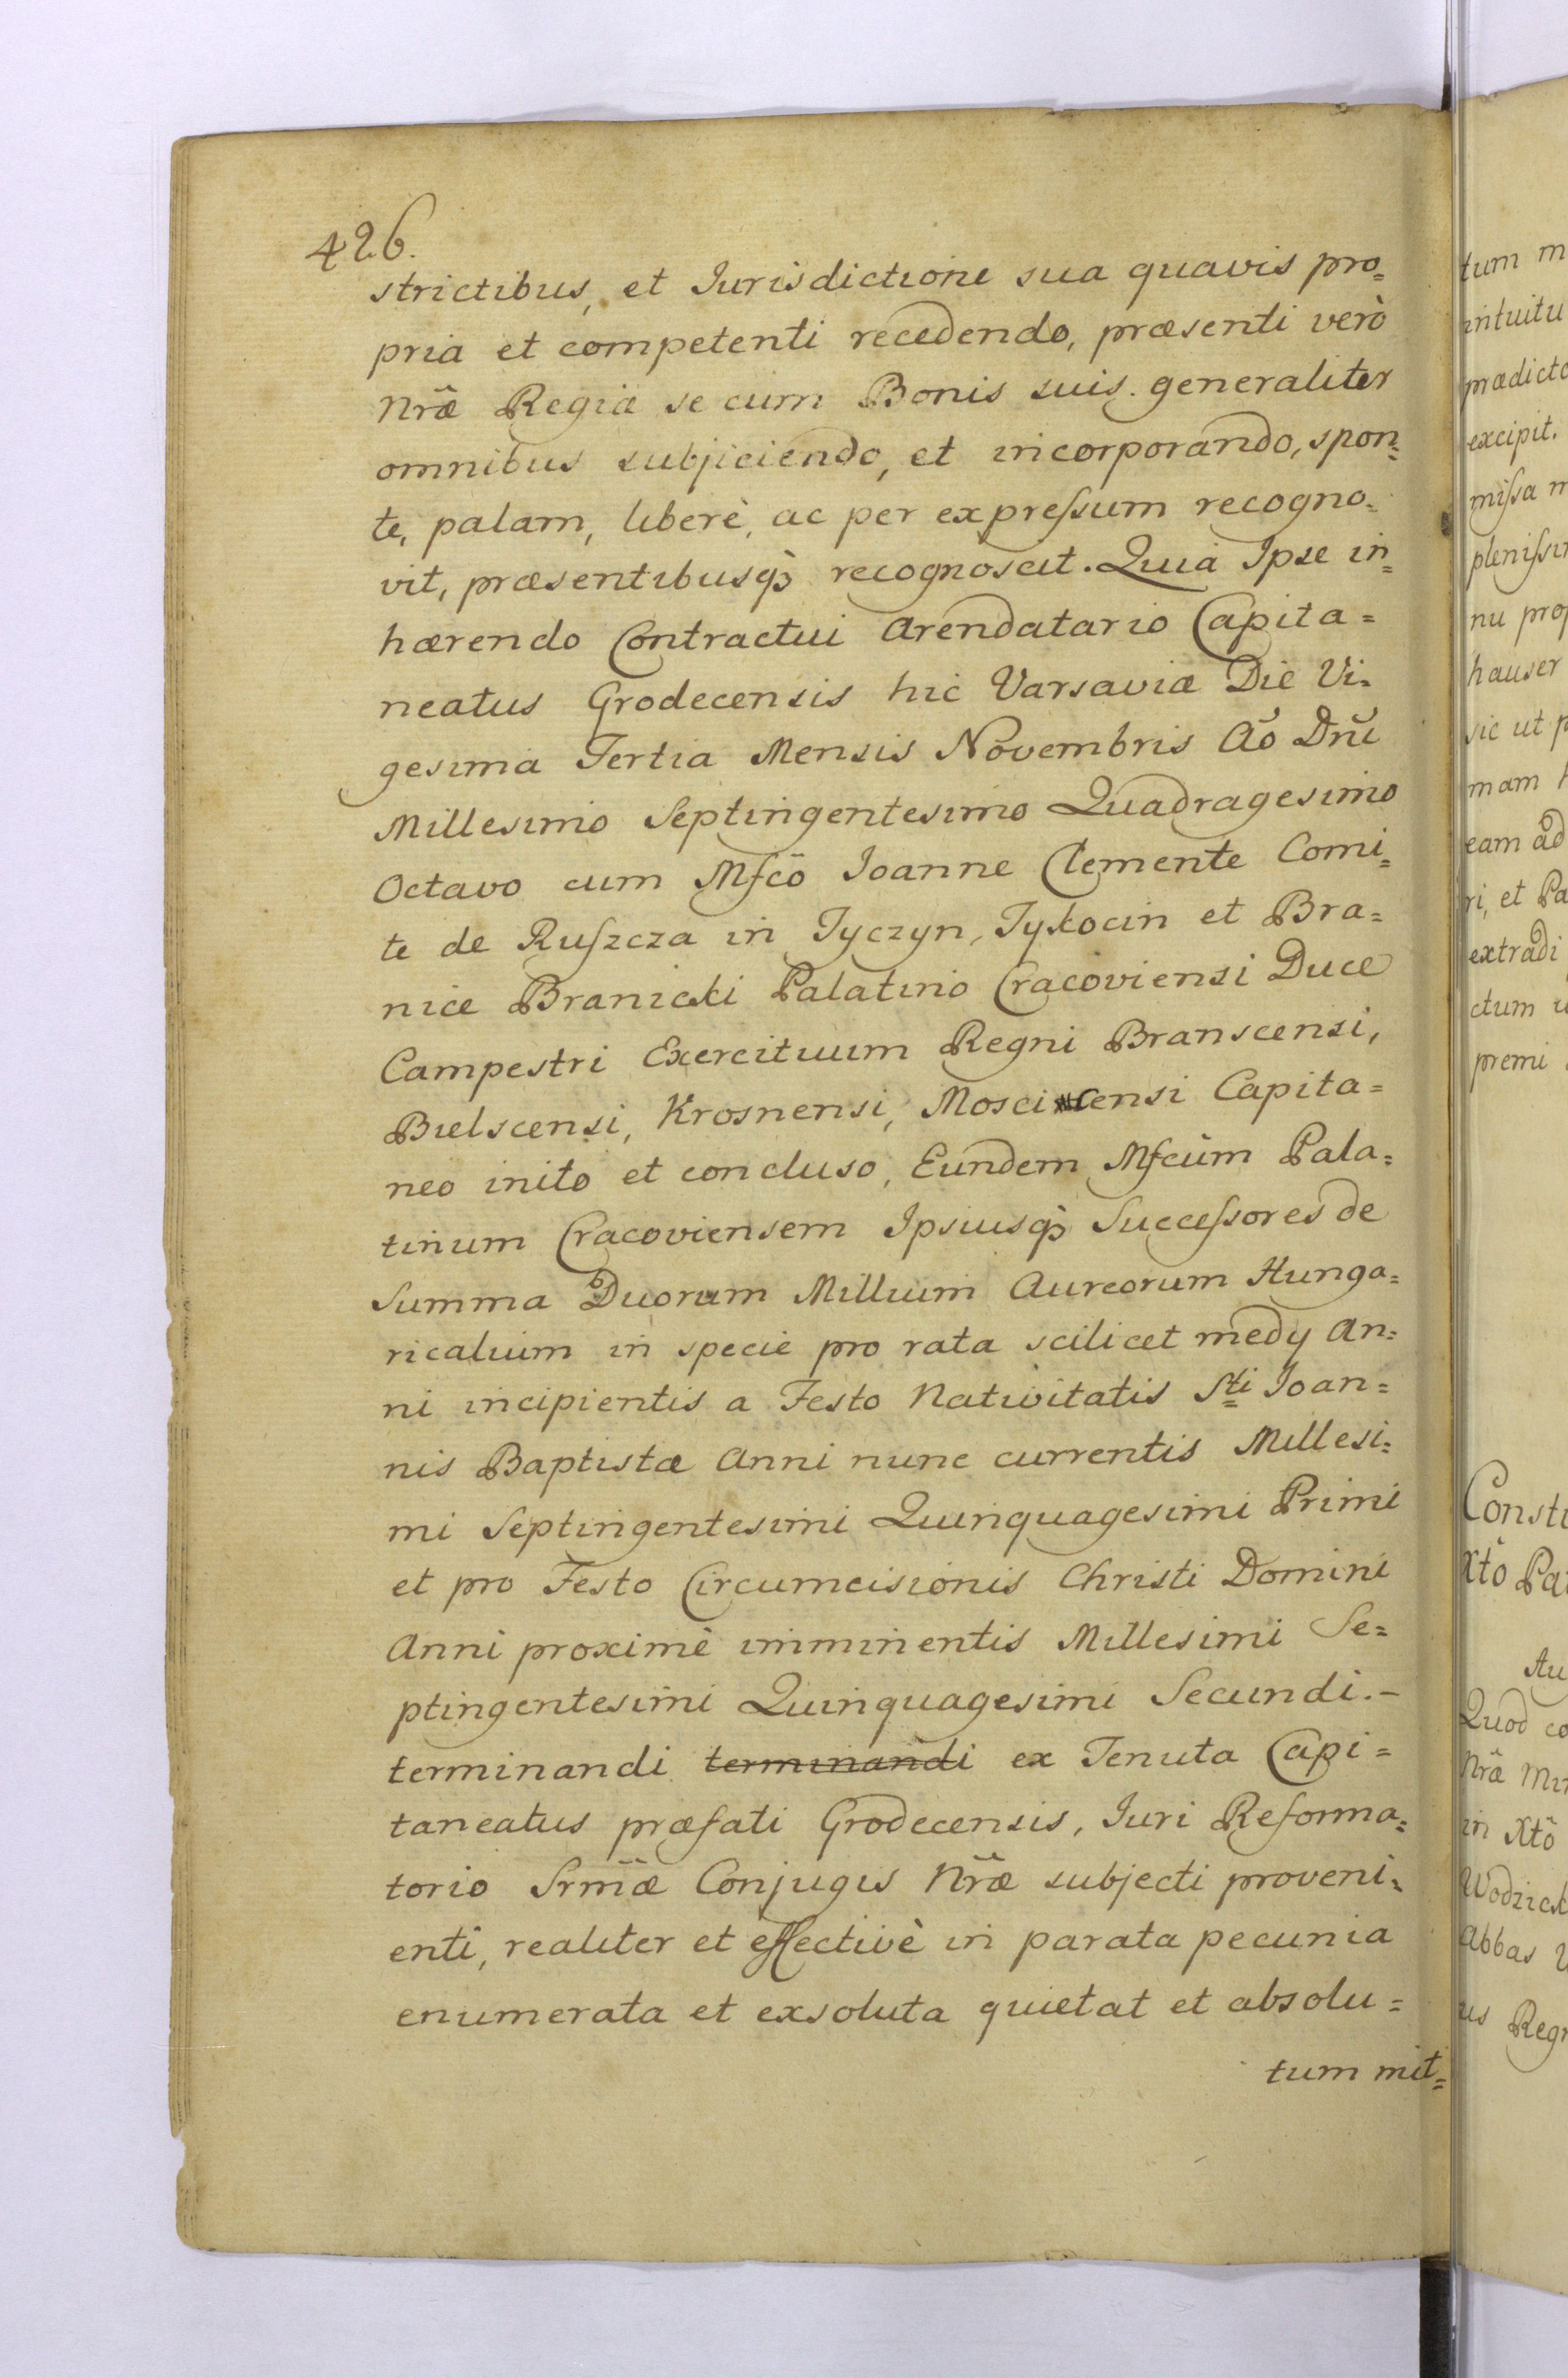 426.
strictibus, et Jurisdictione sua quavis pro=
pria et competenti recedendo, præsenti verò
Nr̃æ Regiæ se cum Bonis suis generaliter
omnibus subjiciendo, et incorporando, spon=
te, palam, liberè, ac per expreſsum recogno=
vit, præsentibusq̀ recognoscit. Quia Ipse in=
hærendo Contractui Arendatario Capita=
neatus Grodecensis hic Varsaviæ Die Vi=
gesima Tertia Mensis Novembris Aõ Dnĩ
Millesimo Septingentesimo Quadragesimo
Octavo cum Mfcõ Ioanne Clemente Comi=
te de Ruſzcza in Tyczyn, Tykocin et Bra=
nice Branicki Palatino Cracoviensi Duce
Campestri Exercituum Regni Branscensi,
Bielscensi, Krosnensi, Moscicensi Capita=
neo inito et concluso, Eundem Mfcũm Pala=
tinum Cracoviensem Ipsiusq̀ Succeſsores de
Summa Duorum Millium Aureorum Hunga=
ricalium in specie pro rata scilicet medij An=
ni incipientis a Festo Nativitatis Sti Joan=
nis Baptistæ Anni nunc currentis Millesi=
mi Septingentesimi Quinquagesimi Primi
et pro Festo Circumcisionis Christi Domini
Anni proximè imminentis Millesimi Se=
ptingentesimi Quinquagesimi Secundi.-
terminandi terminandi ex Tenuta Capi=
taneatus præfati Grodecensis, Iuri Reforma=
torio Srm̃æ Conjugis Nr̃æ subjecti proveni=
enti, realiter et effectivè in parata pecunia
enumerata et exsoluta quietat et absolu=
tum mit=
tum m
intuitu
prædicto
excipit.
miſsa m
pleniſsi
nu prop
hauser
sic ut p
mam h
eam ad
ri, et Pa
extradi
ctum i
premi
Consti
Xtõ Pat
Au
Quod co
Nr̃æ Min
in Xtõ
Wodzick
Abbas
us Regn